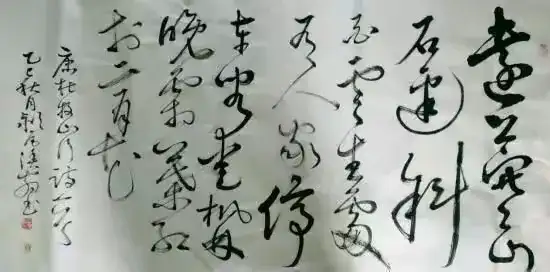 遠上寒山
石逕斜
白雲生處
有人家停
車坐愛楓林
晚霜葉紅
於二月花
唐杜牧山行詩一首
乙巳秋月書